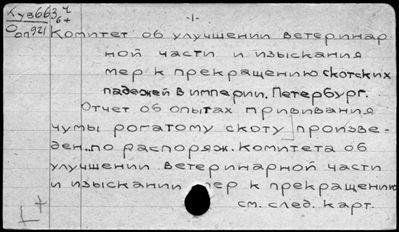 Куз663,4
6+
Ооп921
-1-
Комитет об улучшении ветеринар
ной части и изыскания
мер к прекращению скотских
падежей в империи. Петербург.
Отчет об опытах прививания
чумы рогатому скоту произве-
ден. по распоряж. комитета об
улучшении ветеринарной части
и изыскании мер к прекращению
см. след. карт.